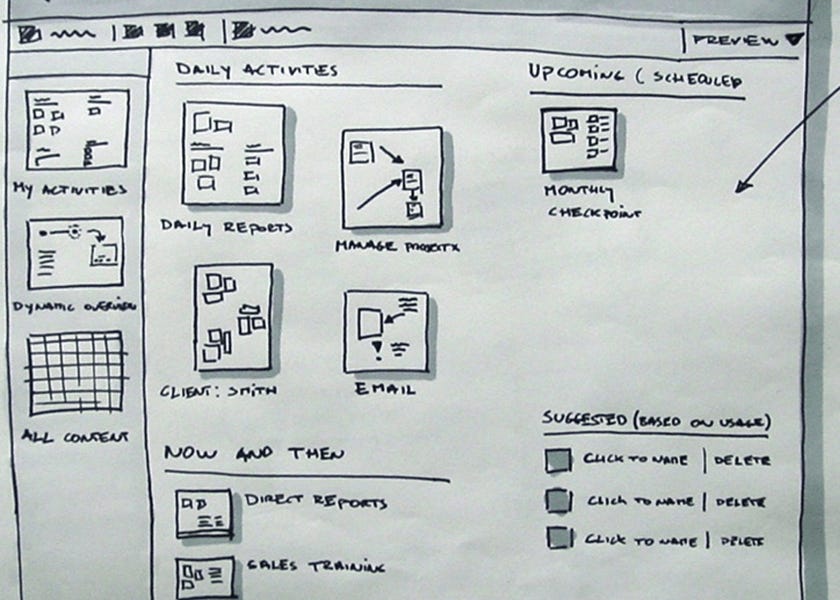 PREVIEW
DAILY ACTIVITIES
UPCOMING ( SCHEDULED
MY ACTIVITIES
DAILY REPORTS
MANAGE PROJECTX
MONTHLY
CHECKPOINT
DYNAMIC OVERVIEW
CLIENT: SMITH
EMAIL
ALL CONTENT
SUGGESTED (BASED ON USAGE)
CLICK TO NAME | DELETE
CLICK TO NAME | DELETE
CLICK TO NAME | DELETE
NOW AND THEN
DIRECT REPORTS
SALES TRAINING